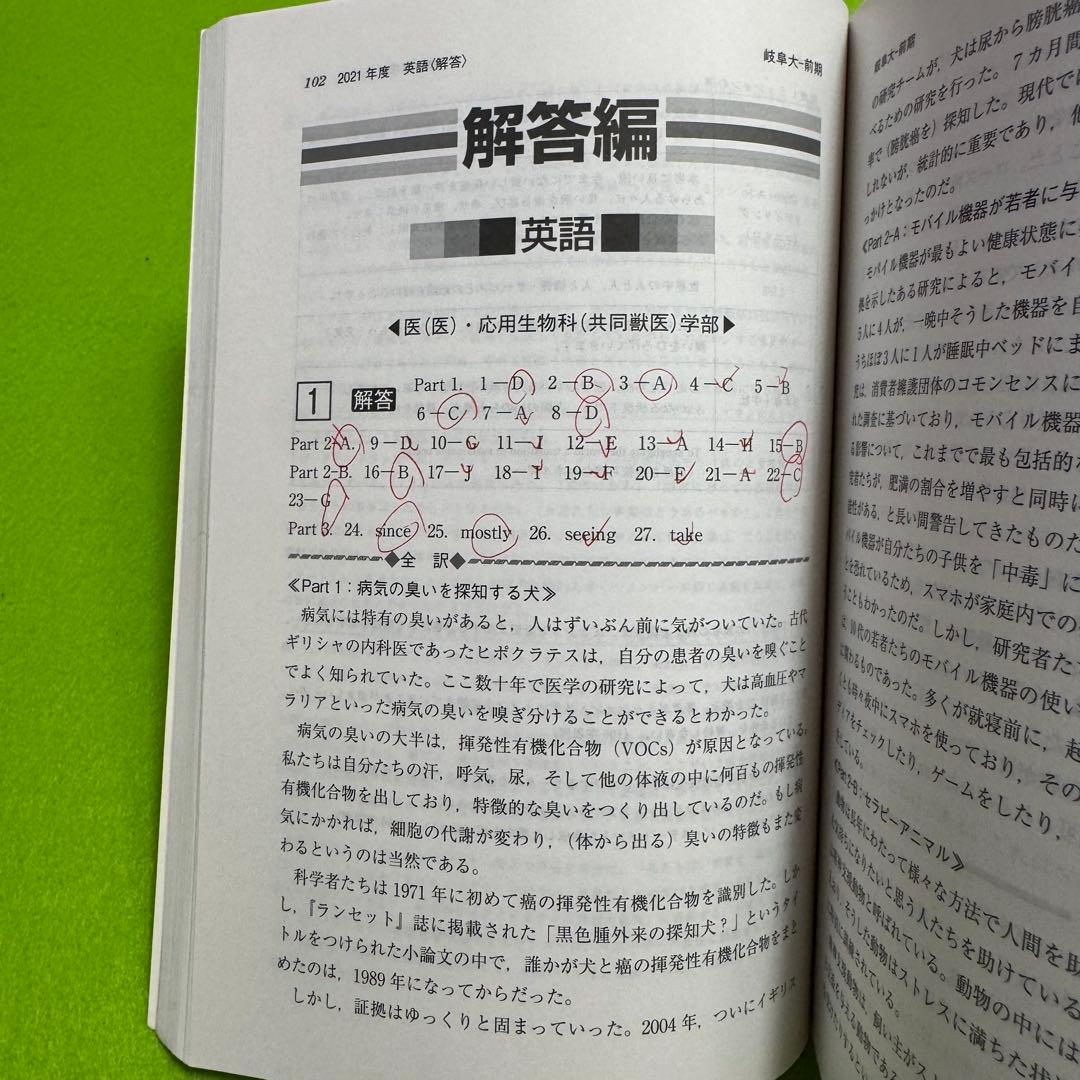 102 2021年度 英語〈解答〉 岐阜大-前期
解答編
英語
◀医(医)・応用生物科(共同獣医)学部▶
1 解答 Part 1. 1－D 2－B 3－A 4－C 5－B
6－C 7－A 8－D
Part 2-A. 9－D 10－G 11－I 12－E 13－A 14－H 15－B
Part 2-B. 16－B 17－J 18－I 19－F 20－E 21－A 22－C
23－G
Part 3. 24. since 25. mostly 26. seeing 27. take
◆全 訳◆
≪Part 1：病気の臭いを探知する犬≫
病気には特有の臭いがあると，人はずいぶん前に気がついていた。古代
ギリシャの内科医であったヒポクラテスは，自分の患者の臭いを嗅ぐこと
でよく知られていた。ここ数十年で医学の研究によって，犬は高血圧やマ
ラリアといった病気の臭いを嗅ぎ分けることができるとわかった。
病気の臭いの大半は，揮発性有機化合物（VOCs）が原因となっている。
私たちは自分たちの汗，呼気，尿，そして他の体液の中に何百もの揮発性
有機化合物を出しており，特徴的な臭いをつくり出しているのだ。もし病
気にかかれば，細胞の代謝が変わり，（体から出る）臭いの特徴もまた変
わるというのは当然である。
科学者たちは1971年に初めて癌の揮発性有機化合物を識別した。しか
し，『ランセット』誌に掲載された「黒色腫外来の探知犬？」というタイ
トルをつけられた小論文の中で，誰かが犬と癌の揮発性有機化合物をまと
めたのは，1989年になってからだった。
しかし，証拠はゆっくりと固まっていった。2004年，ついにイギリス
岐阜大-前期
の研究チームが，犬は尿から膀胱癌
べるための研究を行った。7カ月間
率で（膀胱癌を）探知した。現代では
しれないが，統計的に重要であり，他
っかけとなったのだ。
≪Part 2-A：モバイル機器が若者に与
モバイル機器が最もよい健康状態に
拠を示したある研究によると，モバイ
5人に4人が，一晩中そうした機器を
うちほぼ3人に1人が睡眠中ベッドにま
究は，消費者擁護団体のコモンセンスに
れた調査に基づいており，モバイル機器
る影響について，これまでで最も包括的な
者たちが，肥満の割合を増やすと同時に
能性がある，と長い間警告してきたものだ
バイル機器が自分たちの子供を「中毒」に
とを恐れているため，スマホが家庭内での
うこともわかったのだ。しかし，研究者た
は，10代の若者たちのモバイル機器の使い
わるものであった。多くが就寝前に，起
くとも時々夜中にスマホを使っており，その
ディアをチェックしたり，ゲームをしたり，
ている。
≪Part 2-B：セラピーアニマル≫
動物は長年にわたって様々な方法で人間を助
になりたいと思う人たちを助けている
と呼ばれている。動物の中には
そうした動物はストレスに満ちた状
に訓練されている。